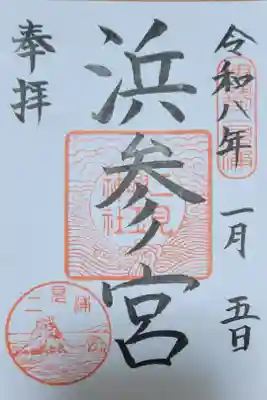 令和八年 一月 五日
浜参宮
奉拝
二見浦